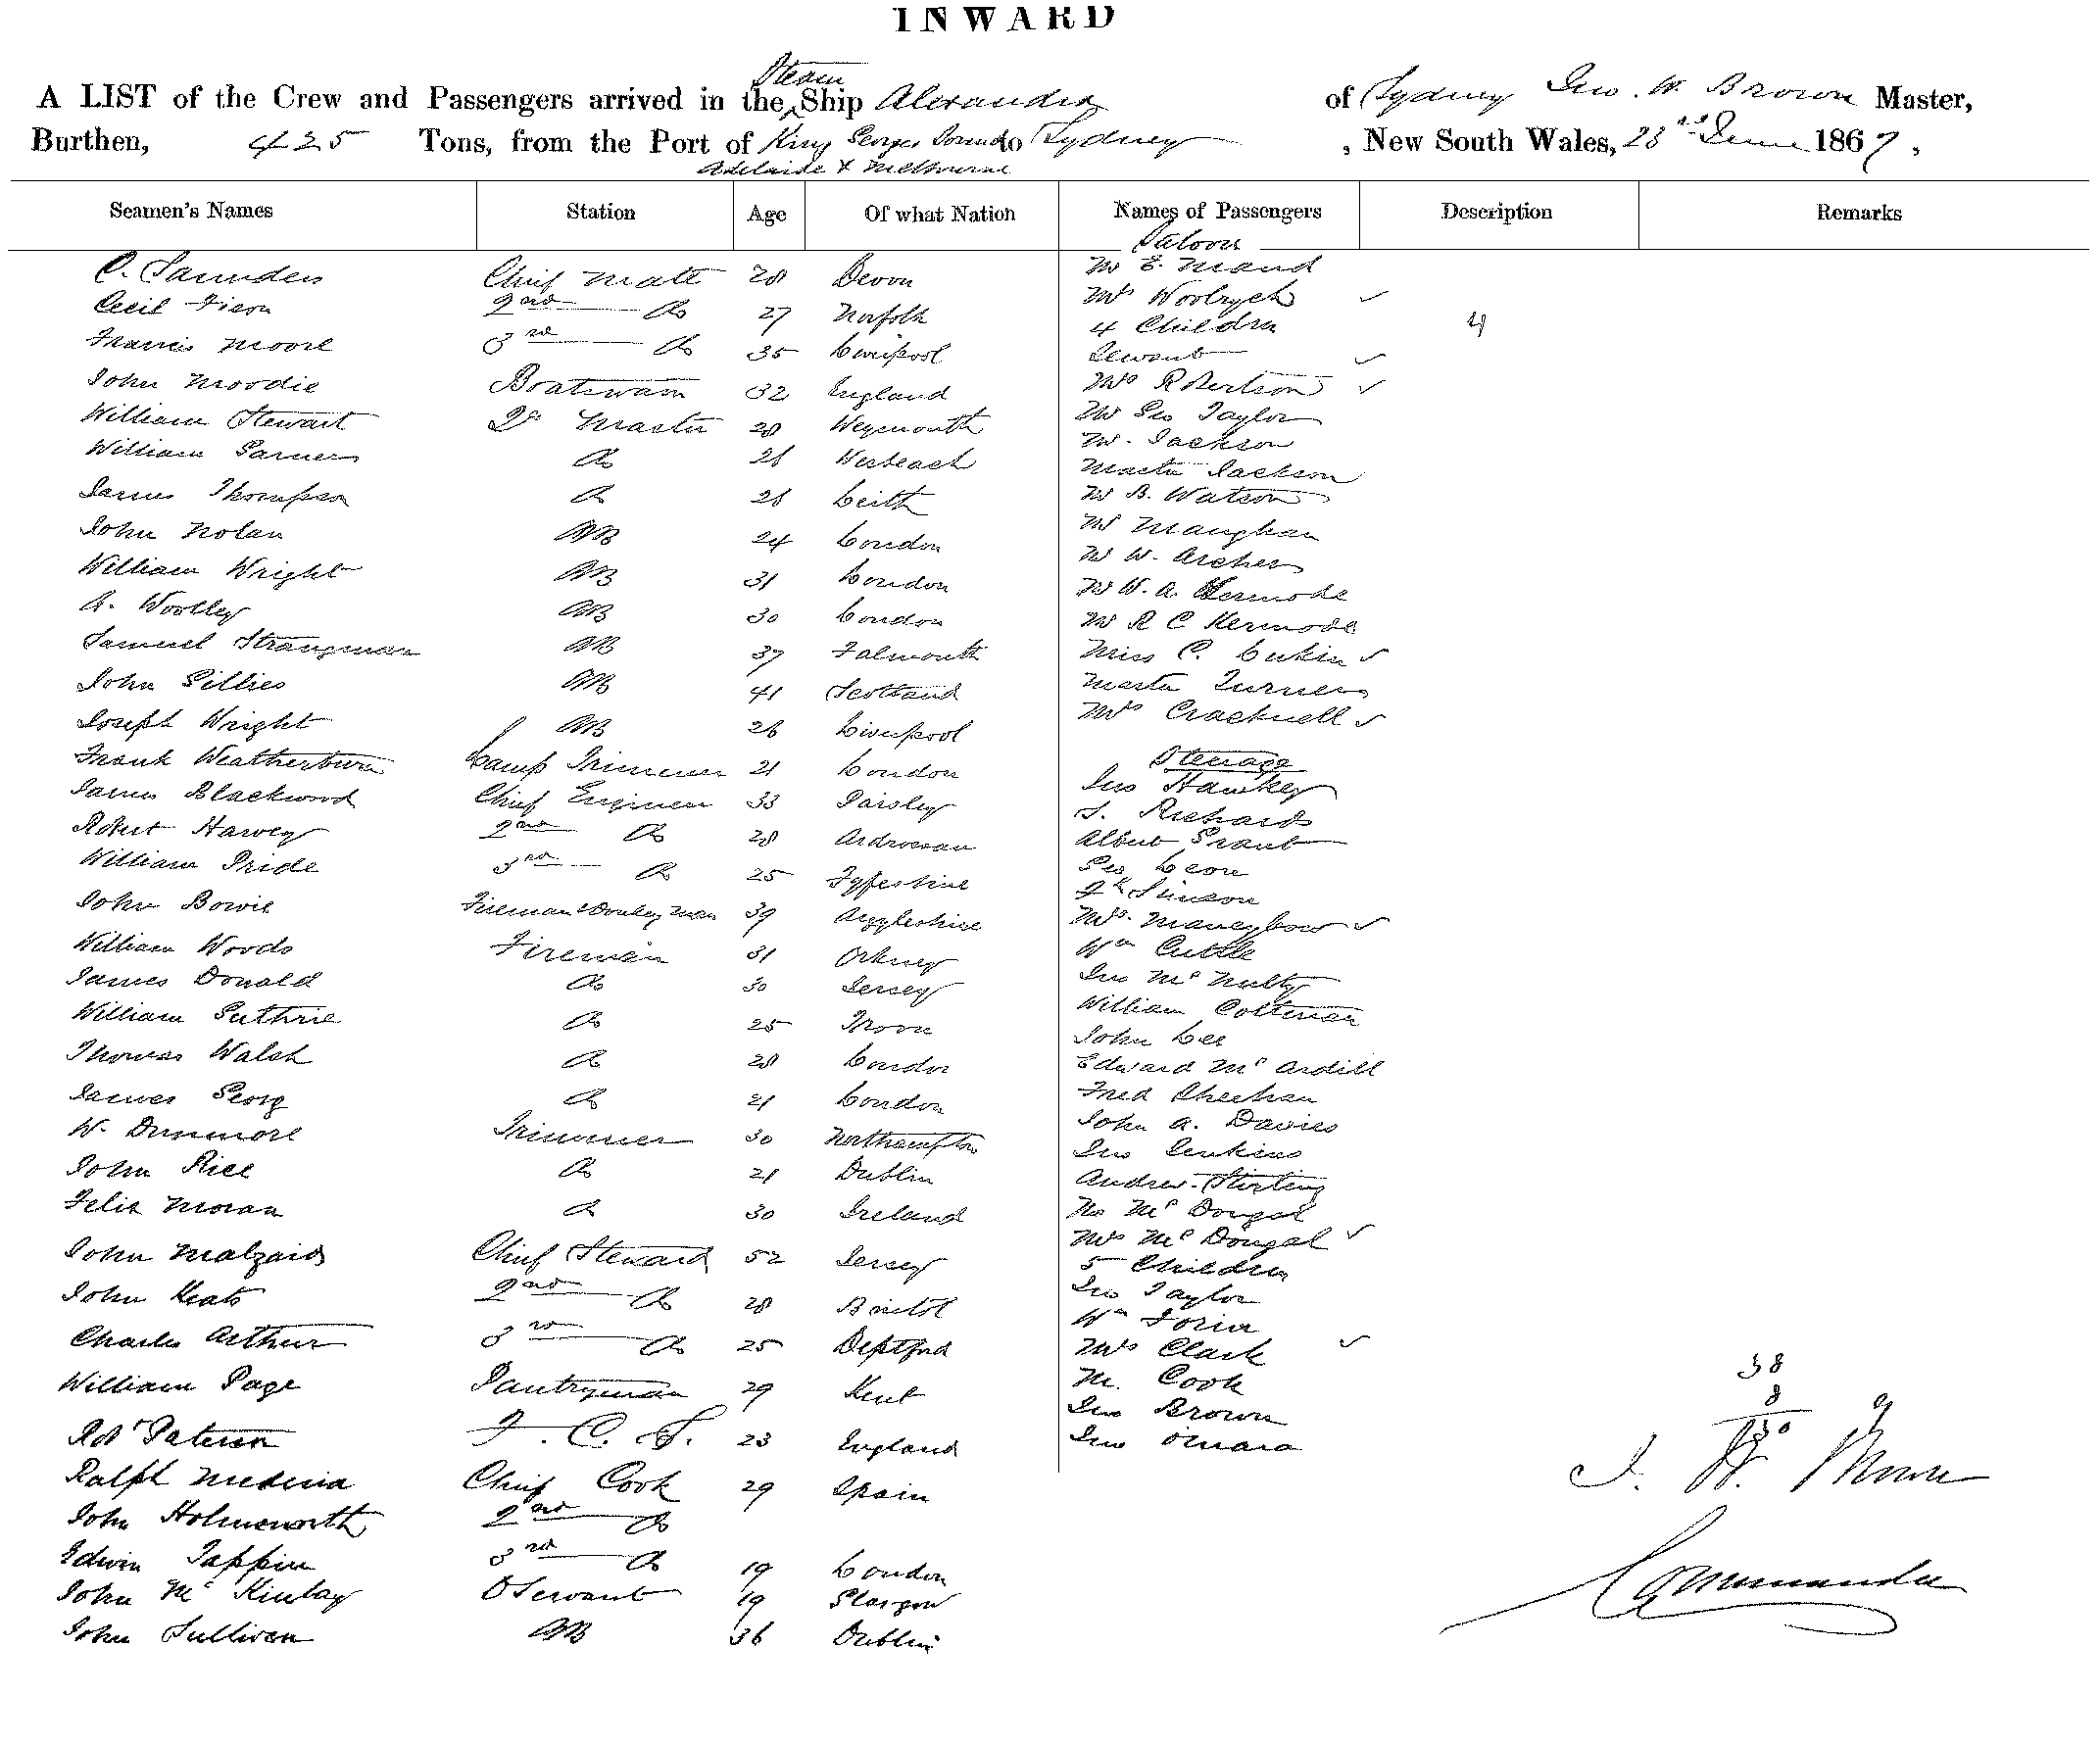 INWARD
Steam
A LIST of the Crew and Passengers arrived in the Ship Alexandra of Sydney Jno. W. Brown Master,
Burthen, 425 Tons, from the Port of King Georges Sound to Sydney, New South Wales, 23rd June 1867,
Adelaide & Melbourne
Seamen's Names Station Age Of what Nation Names of Passengers Description Remarks
Saloon
C. Saunders Chief Mate 28 Devon Mr E. Maud
Cecil Fison 2nd Do 27 Norfolk Mrs Woolrych
4 Children 4
Francis Moore 3rd Do 35 Liverpool Servant
John Moodie Boatswain 32 England Mrs Robertson
William Stewart Qr Master 28 Weymouth Mr Geo Taylor
Mr. Jackson
William Garner Do 26 Wisbeach Master Jackson
James Thompson Do 26 Leith Mr B. Watson
John Nolan AB 24 London Mr Maughan
Mr W. Archer
William Wright AB 31 London Mr W. A. Kermode
A. Woolley AB 30 London Mr R C Kermode
Samuel Strangman AB 37 Falmouth Miss C.
John Gillies AB 41 Scotland Master Turner
Joseph Wright AB 26 Liverpool Mrs Cracknell
Frank Weatherburn Lamp Trimmer 21 London Steerage
James Blackwood Chief Engineer 33 Paisley Jno Hawkey
J. Richards
Robert Harvey 2nd Do 28 Ardrossan Albert Grant
William Pride 3rd Do 25 Fyfeshire Geo Leon
Simson
John Bowie Fireman & Donkey Man 39 Argyleshire Mrs.
William Woods Fireman 31 Orkney Wm Cuttle
James Donald Do 30 Jersey Jno McNulty
William Guthrie Do 25 Troon William Coltman
John Lee
Thomas Walsh Do 28 London Edward McArdill
James Georg Do 21 London Fred Sheehan
W. Dunmore Trimmer 30 Northampton John A. Davies
Jno Jenkins
John Rice Do 21 Dublin Andrew Stirling
Felix Moran Do 30 Ireland Mr McDougal
Mrs McDougal
John Malzard Chief Steward 52 Jersey 5 Children
John Keats 2nd Do 28 Bristol Jno Taylor
Wm
Charles Arthur 3rd Do 25 Deptford Mrs Clark
William Page Pantryman 29 Kent M. Cook 38
Jno Brown 8
Rbt Paterson F. C. S. 23 England Jno Omara 30
Ralph Medina Chief Cook 29 Spain J. W. Brown
John Holmsworth 2nd Do
Edwin Tappin 3rd Do 19 London Commander
John McKinlay O Servant 19 Glasgow
John Sullivan AB 36 Dublin